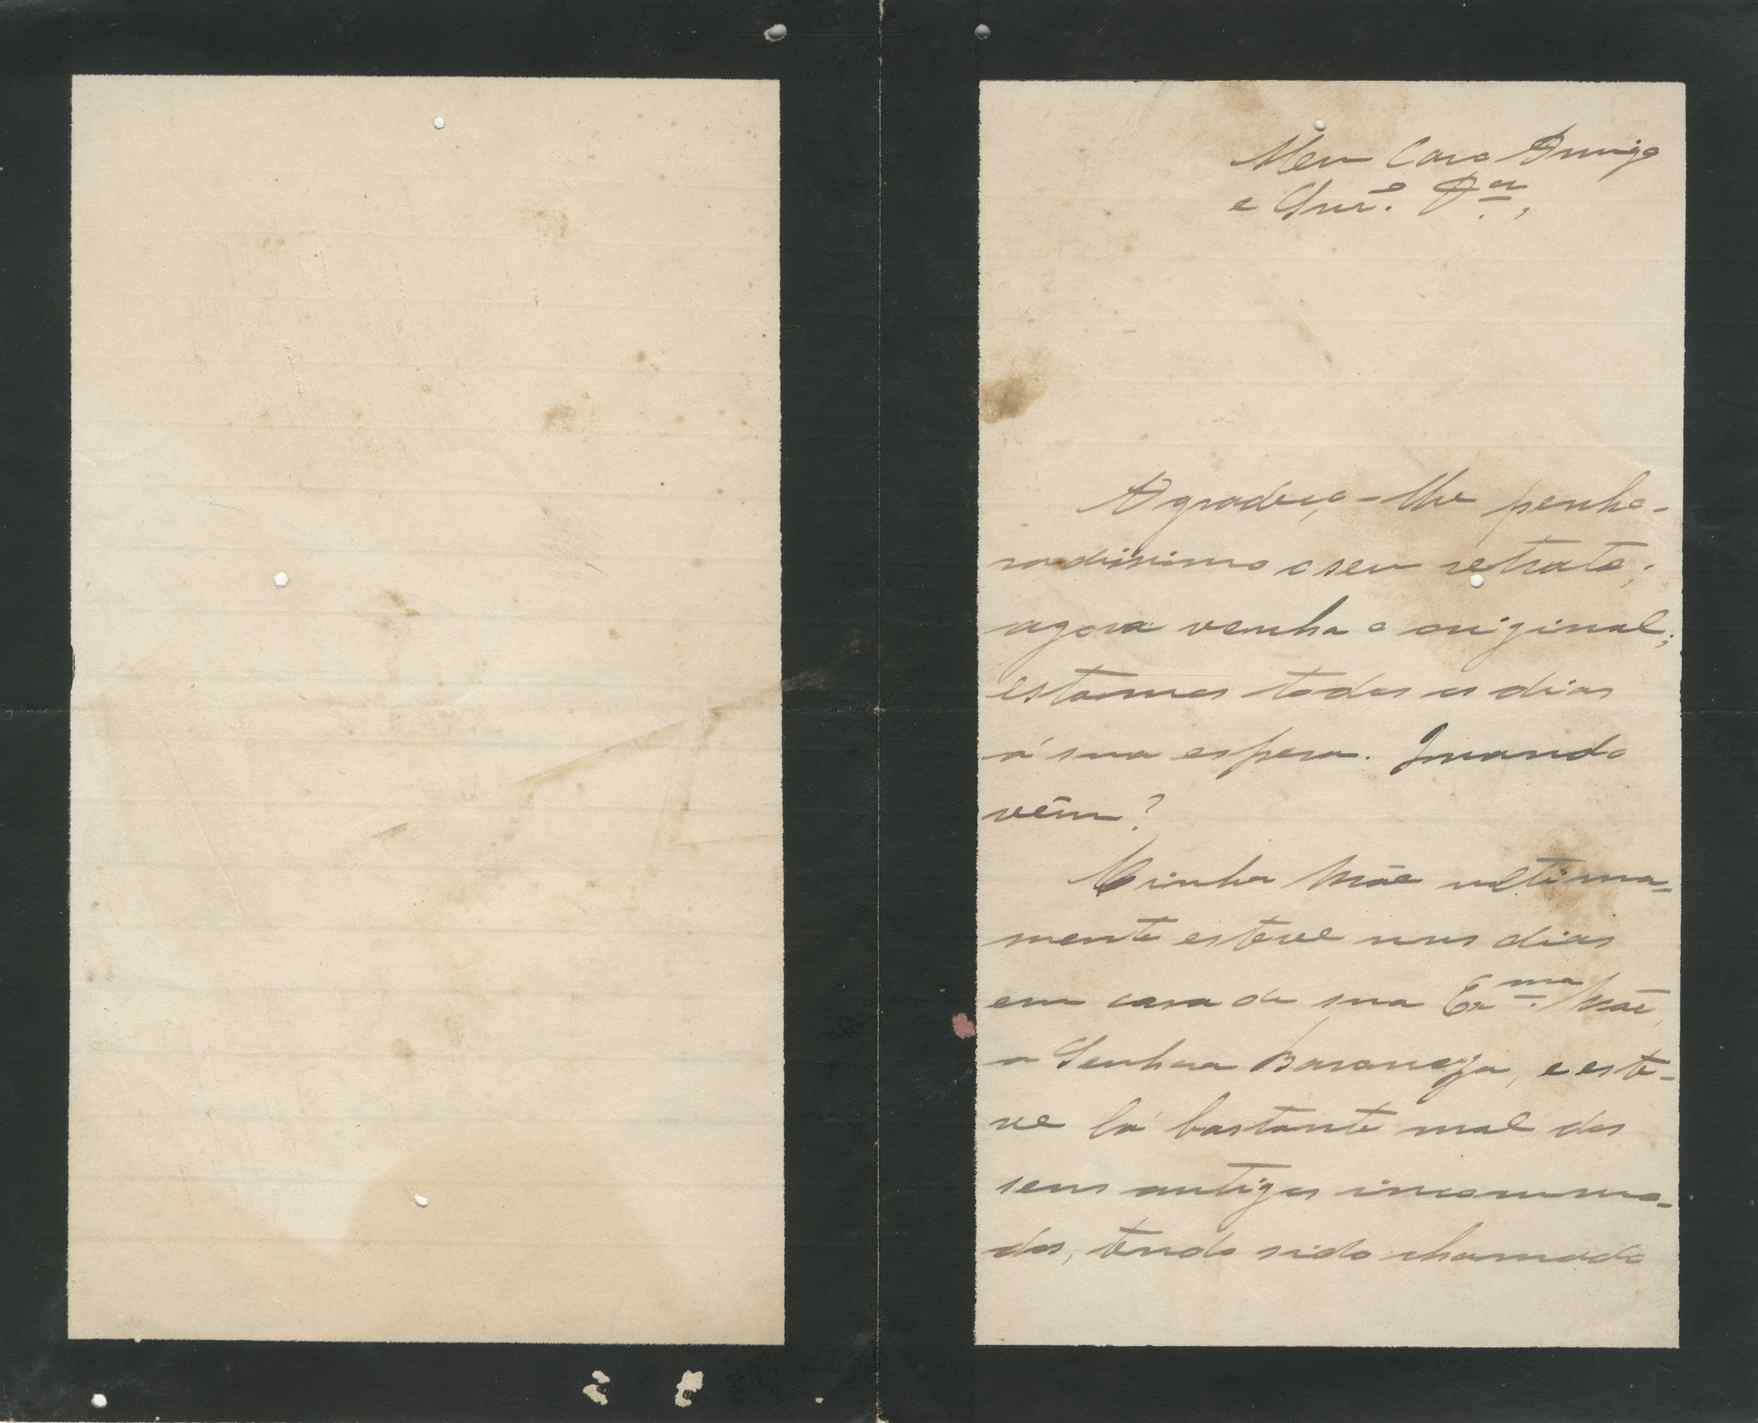 Meu Caro Amigo
e Snr. Dr.,
Agradeço-lhe penho-
radissimo o seu retrato;
agora venha o original;
estamos todos os dias
á sua espera. Quando
vêm?
Minha Mãe ultima-
mente esteve uns dias
em casa de sua Ex.ma Mãe,
a Senhora Baroneza, e este-
ve lá bastante mal dos
seus antigos incommo-
dos, tendo sido chamado